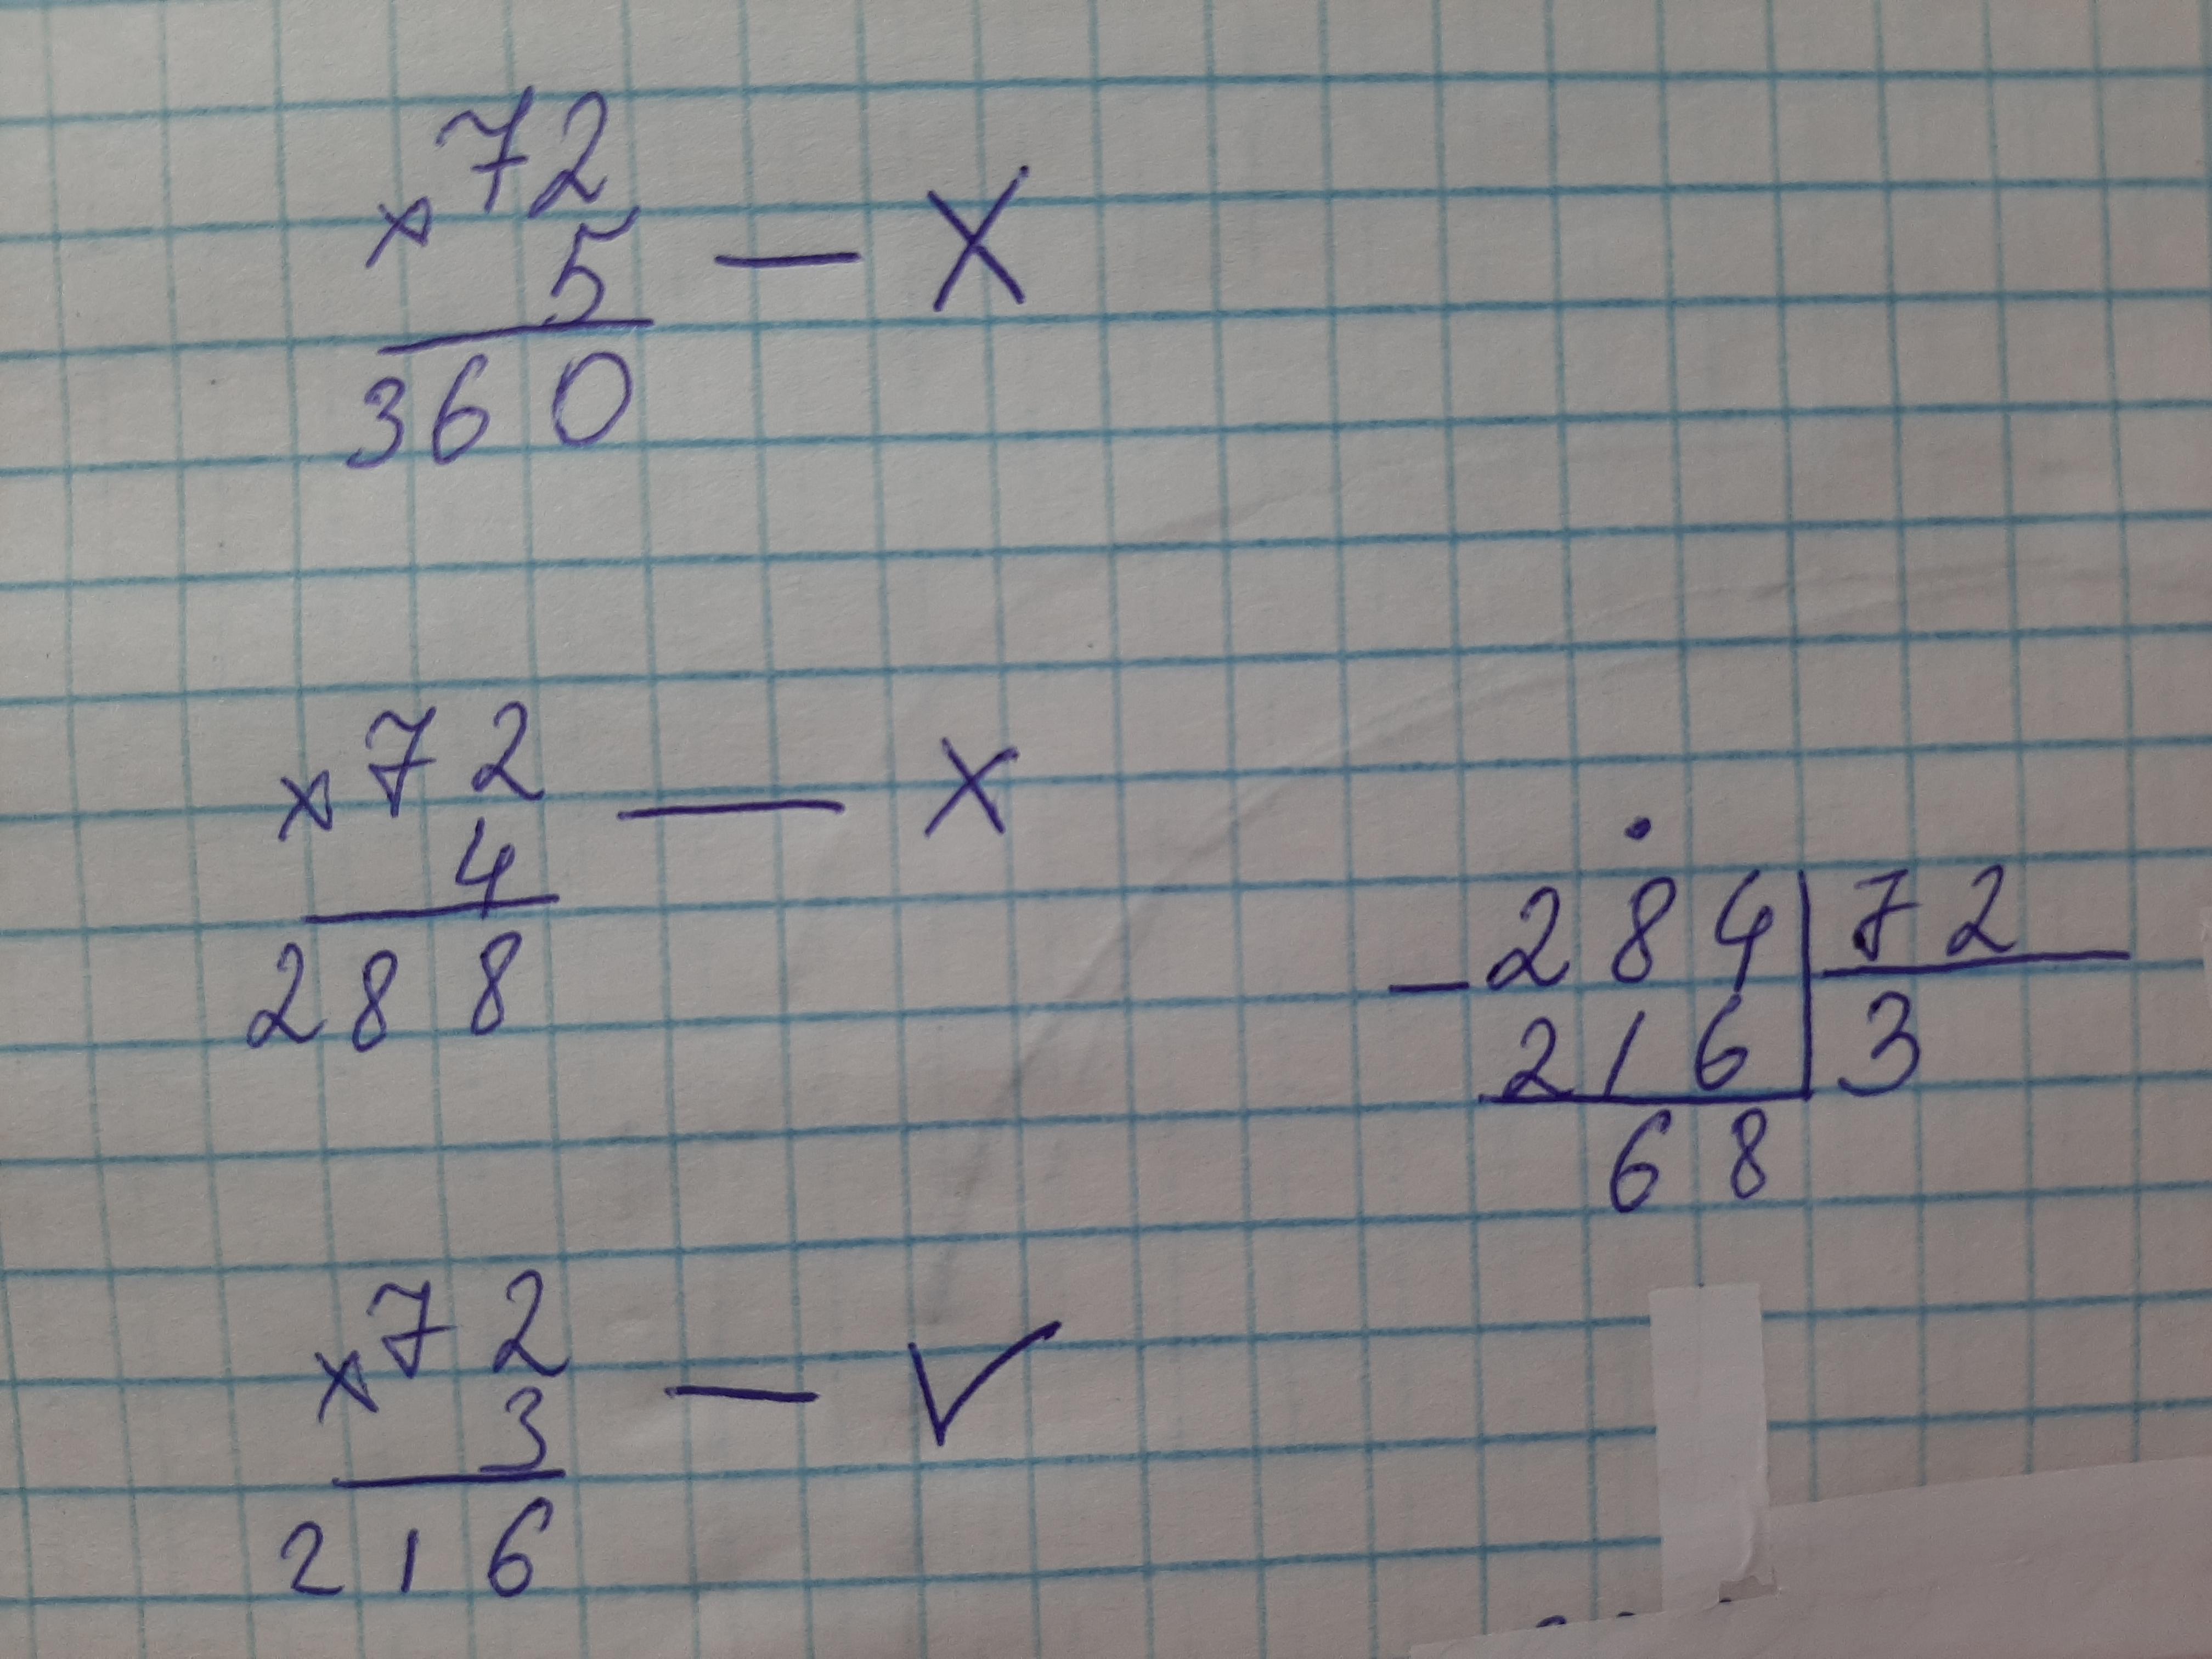 ×72
5 — X
360
×72 — X
4
288
−284|72
216|3
68
×72
3 — ✓
216